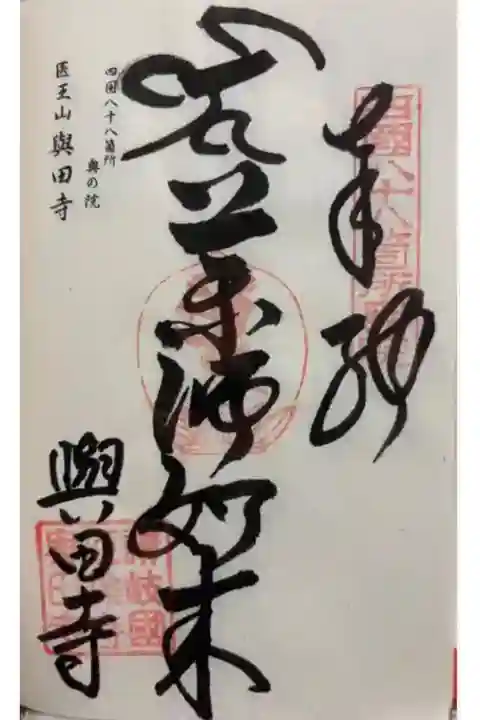 奉納
四國八十八箇所
薬師如来
與田寺
讃岐國
四国八十八箇所
奥の院
医王山 與田寺